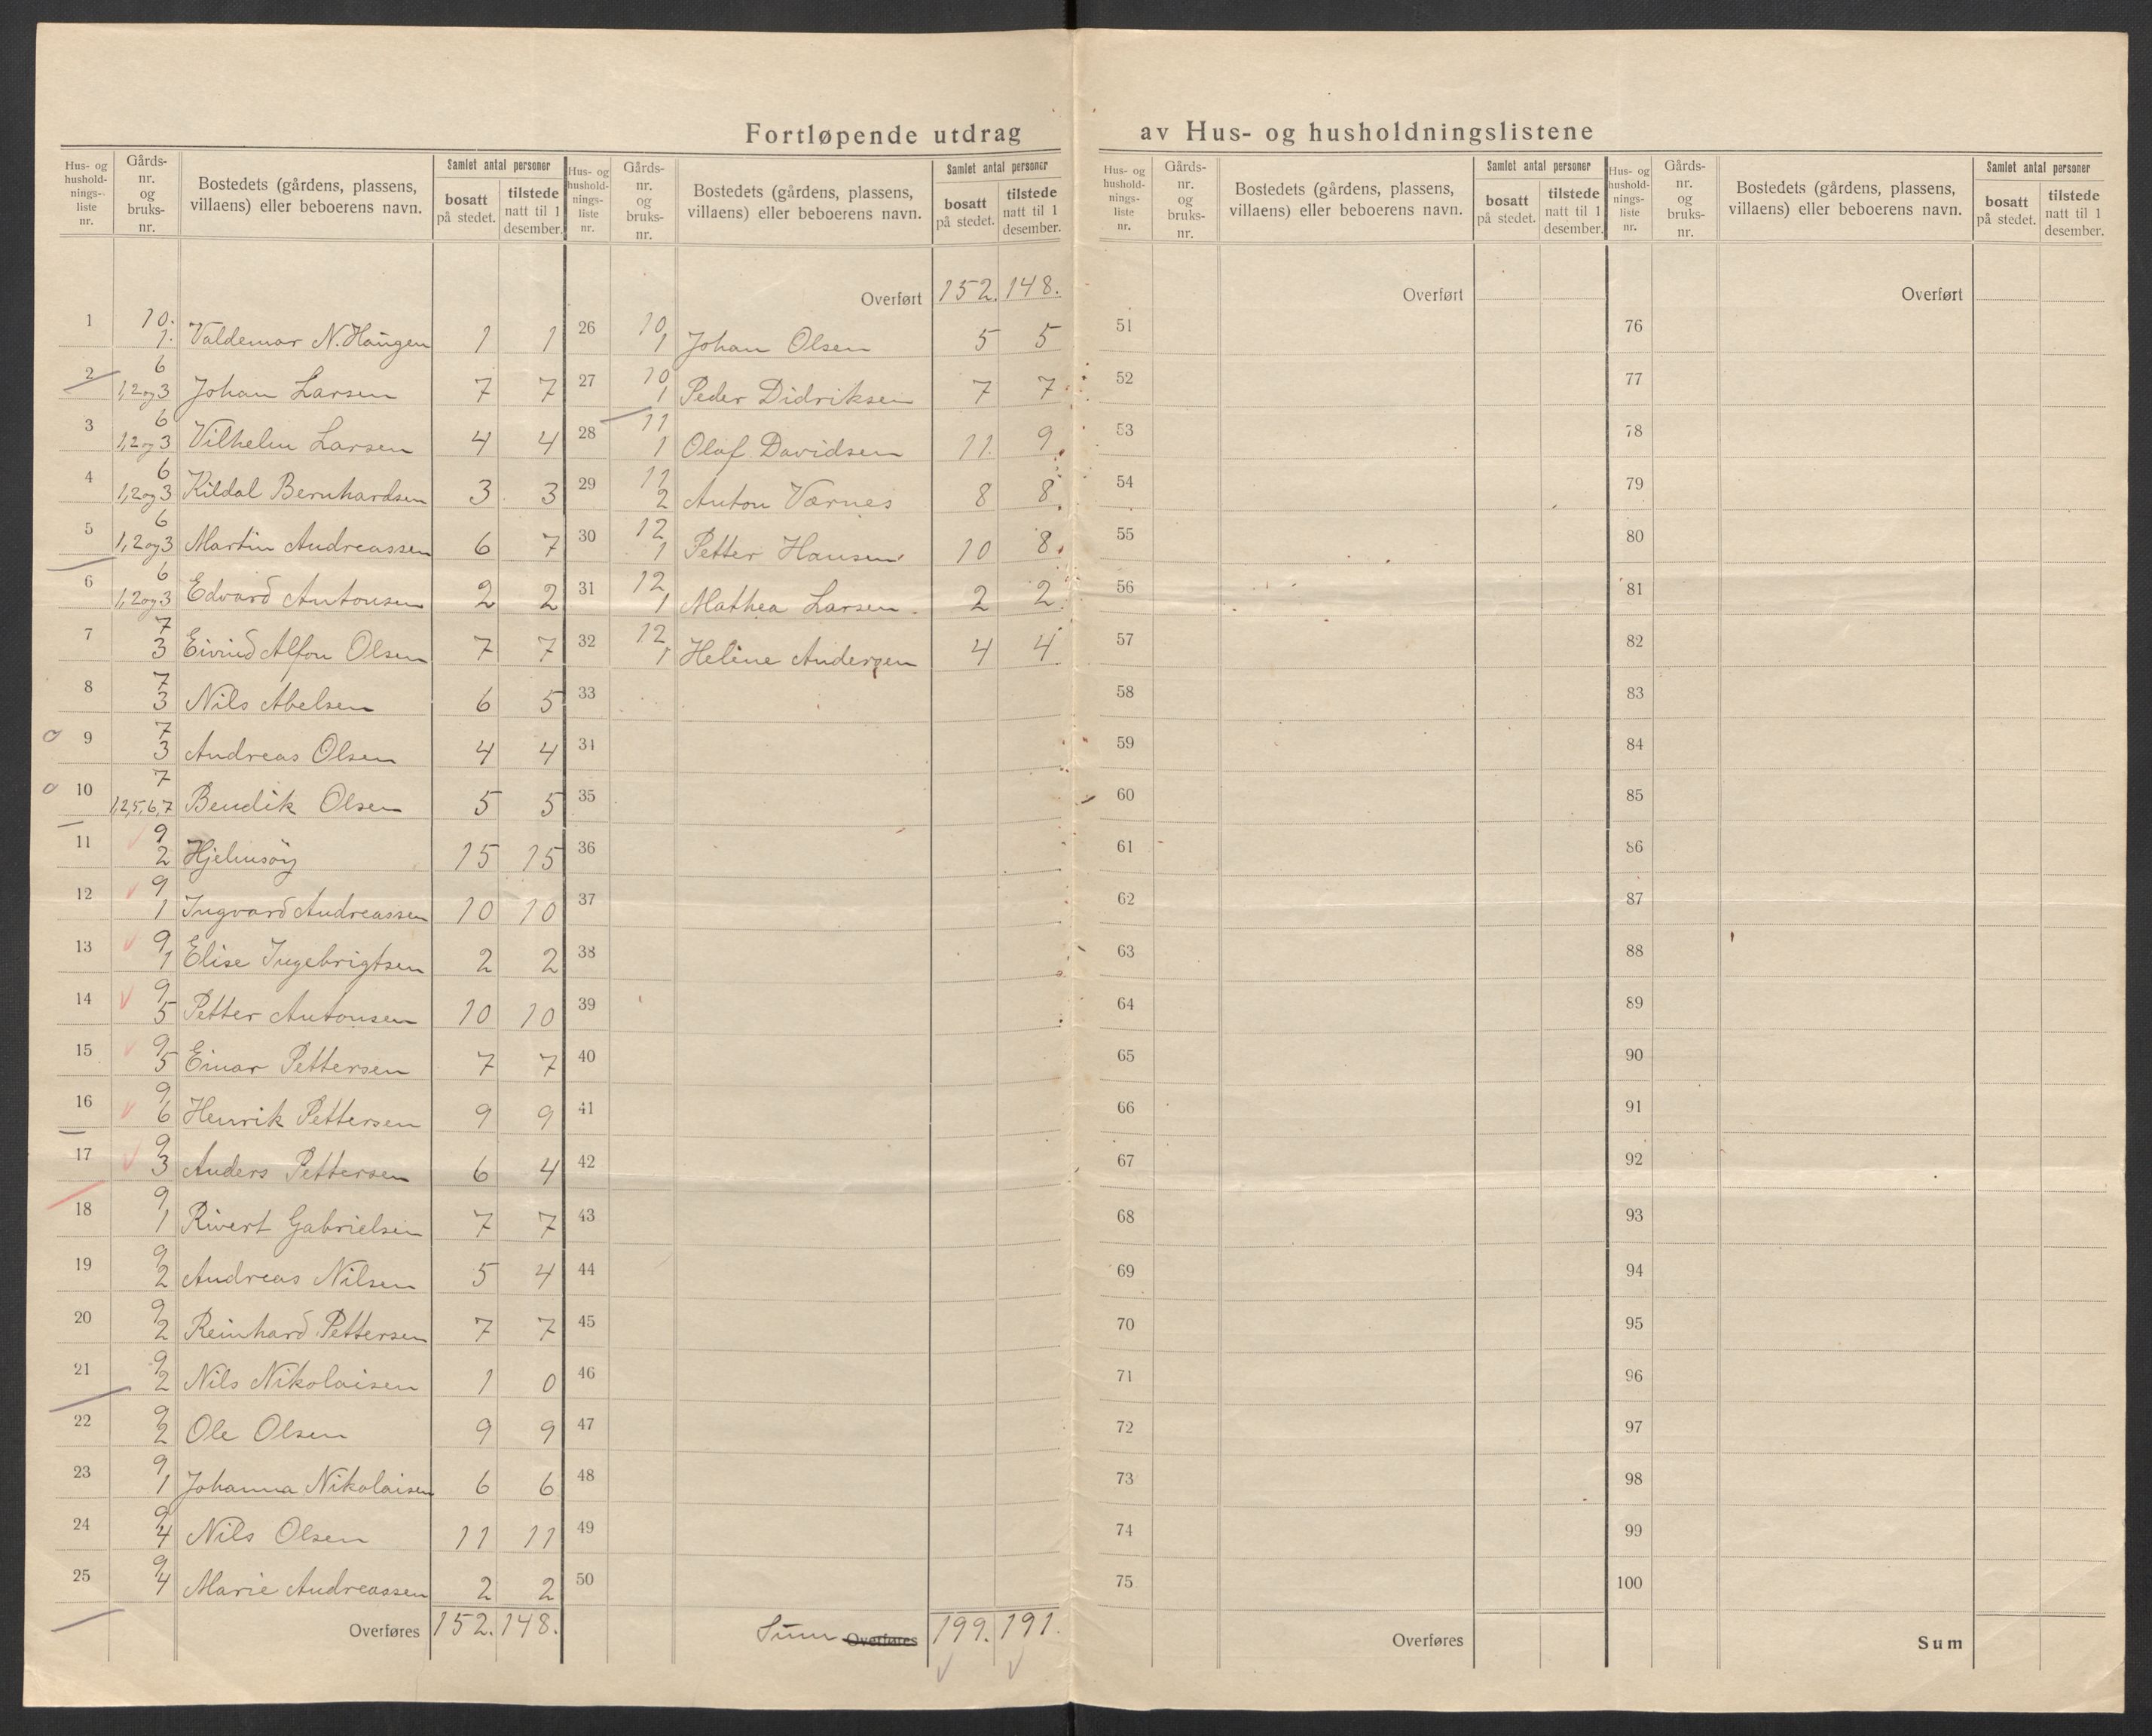 Fortløpende utdrag av Hus- og husholdningslistene
Hus- og hushold-nings-liste nr. Gårds-nr. og bruks-nr. Bostedets (gårdens, plassens, villaens) eller beboerens navn. Samlet antal personer bosatt på stedet. tilstede natt til 1 desember.
Hus- og hushold-nings-liste nr. Gårds-nr. og bruks-nr. Bostedets (gårdens, plassens, villaens) eller beboerens navn. Samlet antal personer bosatt på stedet. tilstede natt til 1 desember.
Hus- og hushold-nings-liste nr. Gårds-nr. og bruks-nr. Bostedets (gårdens, plassens, villaens) eller beboerens navn. Samlet antal personer bosatt på stedet. tilstede natt til 1 desember.
Hus- og hushold-nings-liste nr. Gårds-nr. og bruks-nr. Bostedets (gårdens, plassens, villaens) eller beboerens navn. Samlet antal personer bosatt på stedet. tilstede natt til 1 desember.
1 10. 1. Valdemar N. Haugen 1 1
2 6 1,2og3 Johan Larsen 7 7
3 6 1,2og3 Vilhelm Larsen 4 4
4 6 1,2og3 Kildal Bernhardsen 3 3
5 6 1,2og3 Martin Andreassen 6 7
6 6 1,2og3 Edvard Antonsen 2 2
7 7 3 Eivind Alfon Olsen 7 7
8 7 3 Nils Abelsen 6 5
9 7 3 Andreas Olsen 4 4
10 7 1,2,5,6,7 Bendik Olsen 5 5
11 9 2 Hjelmsöy 15 15
12 9 1 Ingvard Andreassen 10 10
13 9 1 Elise Ingebrigtsen 2 2
14 9 5 Petter Antonsen 10 10
15 9 5 Einar Pettersen 7 7
16 9 6 Henrik Pettersen 9 9
17 9 3 Anders Pettersen 6 4
18 9 1 Rivert Gabrielsen 7 7
19 9 2 Andreas Nilsen 5 4
20 9 2 Reinhard Pettersen 7 7
21 9 2 Nils Nikolaisen 1 0
22 9 2 Ole Olsen 9 9
23 9 1 Johanna Nikolaisen 6 6
24 9 4 Nils Olsen 11 11
25 9 4 Marie Andreassen 2 2
Overføres 152. 148.
Overført 152. 148.
26 10 1 Johan Olsen 5 5
27 10 1 Peder Didriksen 7 7
28 11 1 Olaf Davidsen 11 9
29 11 2 Anton Værnes 8 8
30 12 1 Petter Hansen 10 8
31 12 1 Mathea Larsen 2 2
32 12 1 Heline Andersen 4 4
33
34
35
36
37
38
39
40
41
42
43
44
45
46
47
48
49
50
Sum Overføres 199. 191.
Overført
51
52
53
54
55
56
57
58
59
60
61
62
63
64
65
66
67
68
69
70
71
72
73
74
75
Overføres
Overført
76
77
78
79
80
81
82
83
84
85
86
87
88
89
90
91
92
93
94
95
96
97
98
99
100
Sum